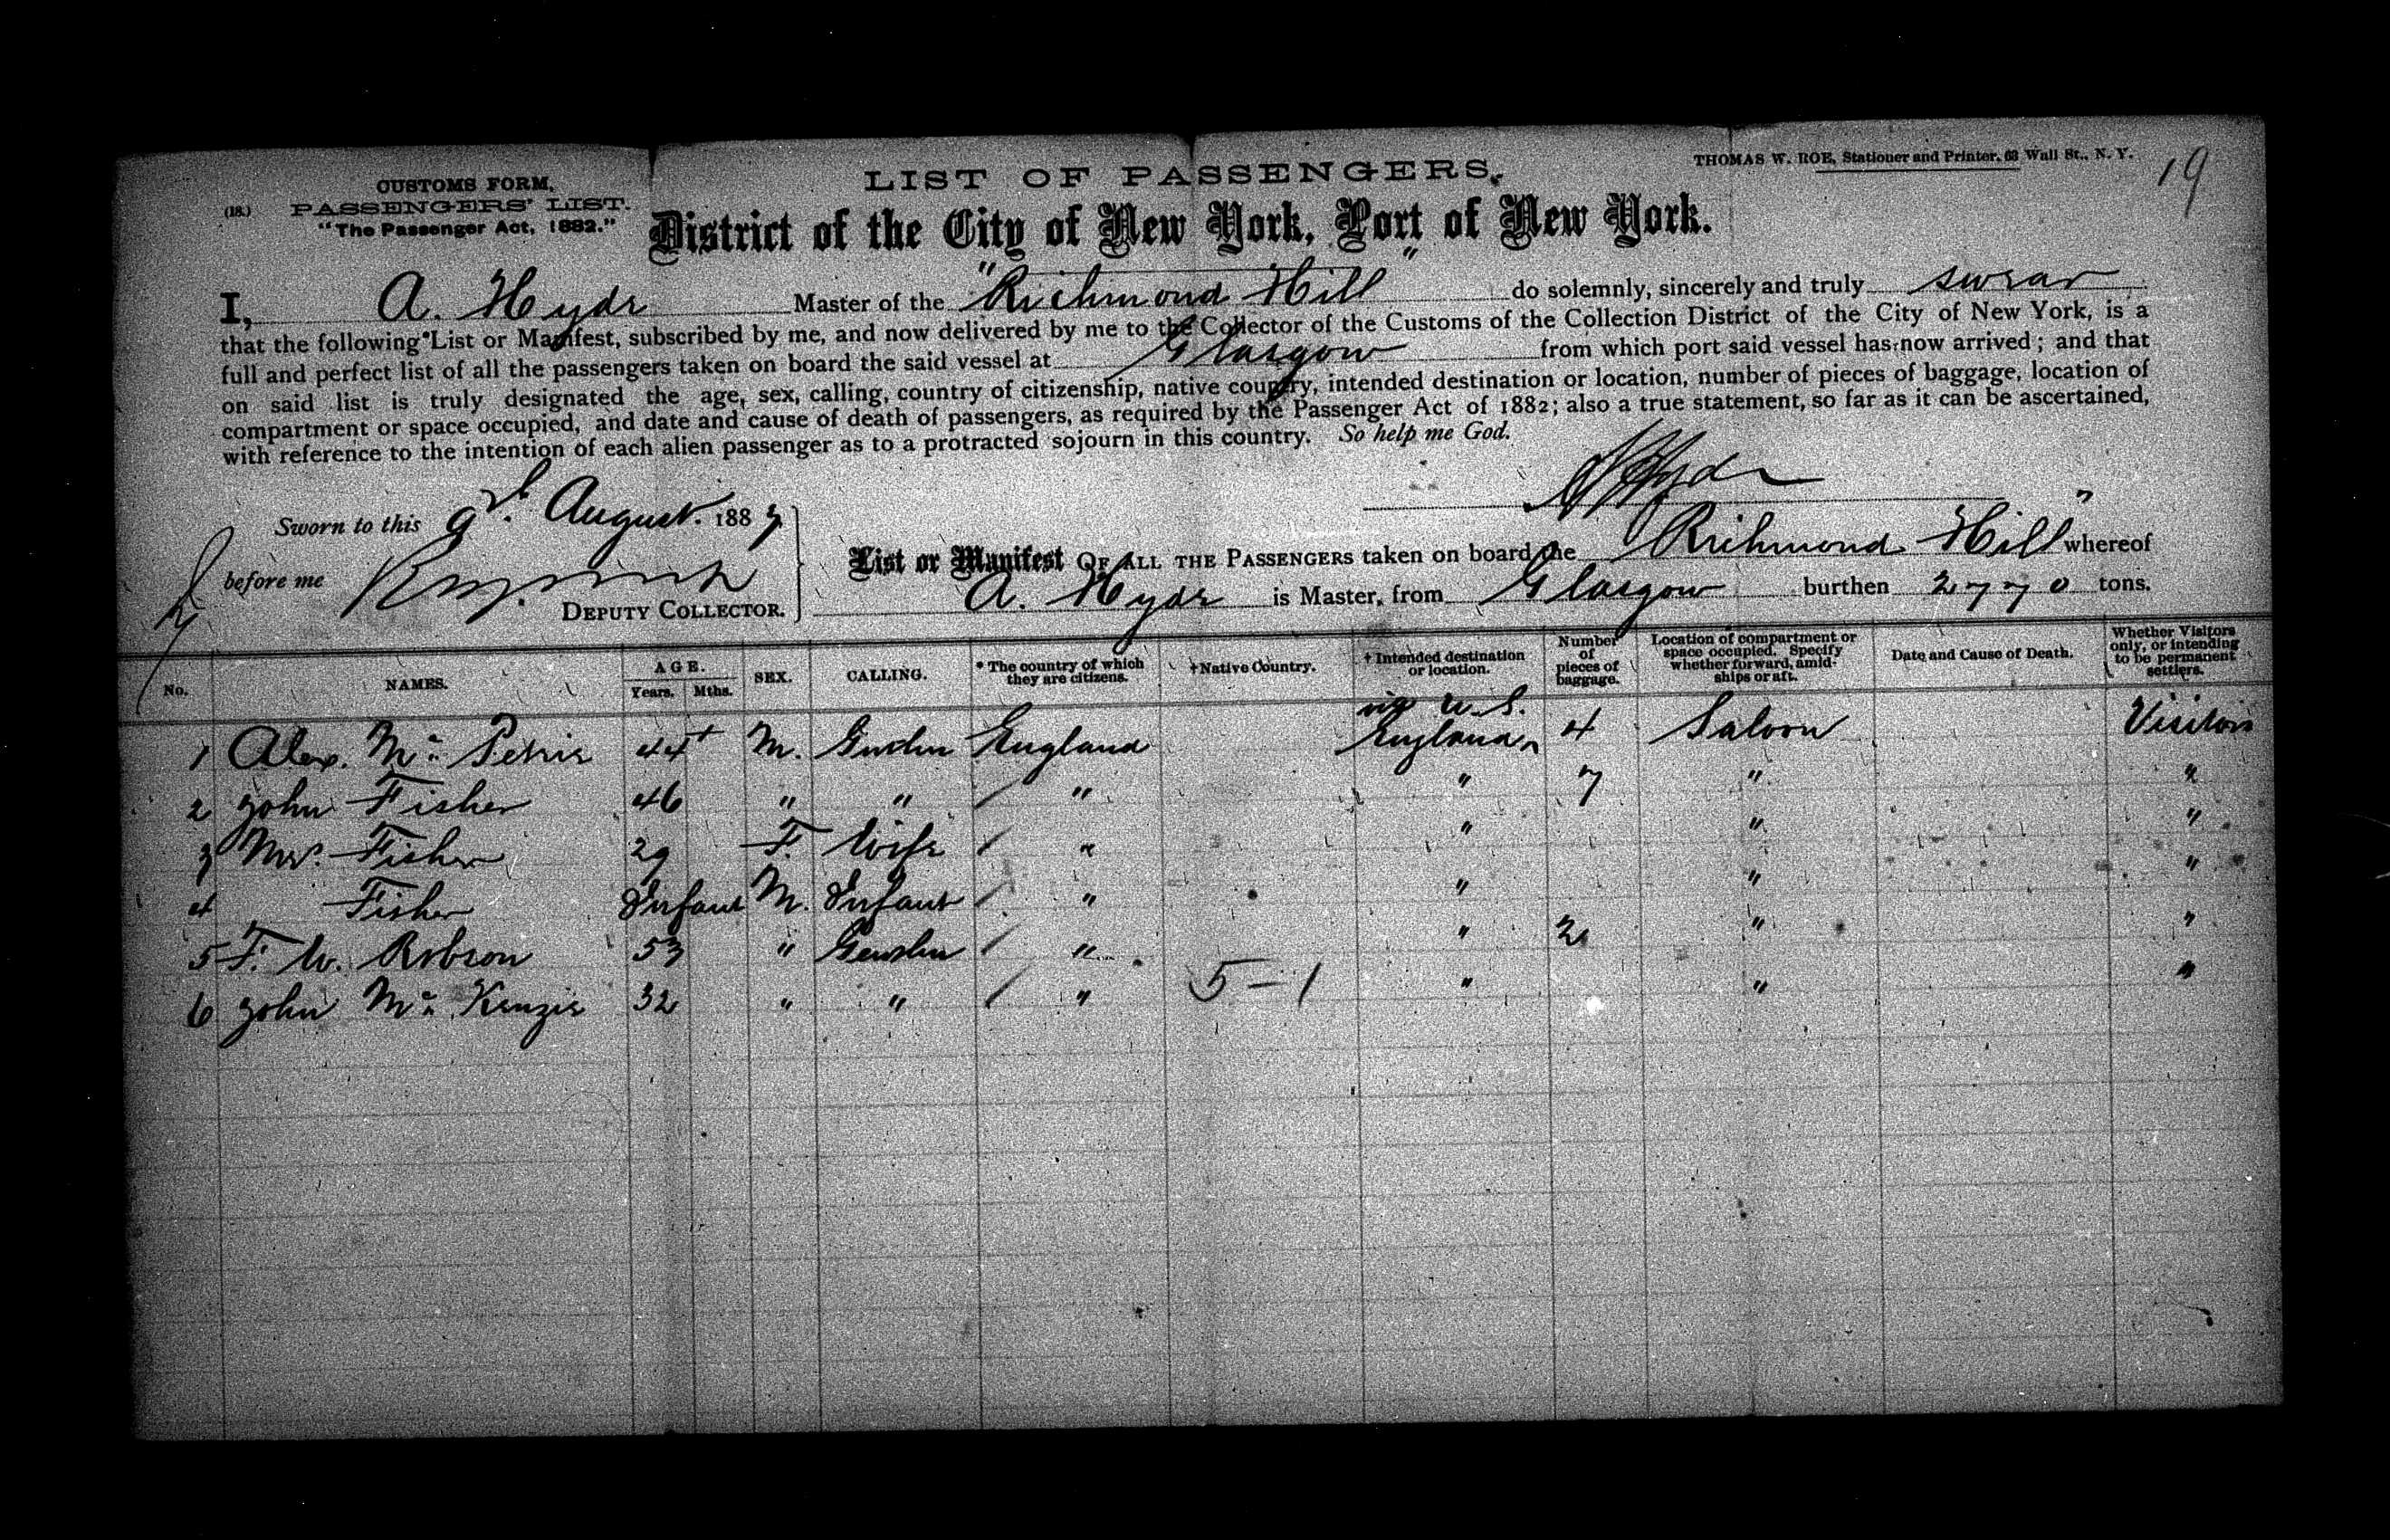 THOMAS W. ROE, Stationer and Printer, 63 Wall St., N. Y.
19
CUSTOMS FORM,
(18.) PASSENGERS' LIST.
"The Passenger Act, 1882."
LIST OF PASSENGERS,
District of the City of New York, Port of New York.
I, A. Hyde Master of the "Richmond Hill" do solemnly, sincerely and truly swear
that the following List or Manifest, subscribed by me, and now delivered by me to the Collector of the Customs of the Collection District of the City of New York, is a
full and perfect list of all the passengers taken on board the said vessel at Glasgow from which port said vessel has now arrived; and that
on said list is truly designated the age, sex, calling, country of citizenship, native country, intended destination or location, number of pieces of baggage, location of
compartment or space occupied, and date and cause of death of passengers, as required by the Passenger Act of 1882; also a true statement, so far as it can be ascertained,
with reference to the intention of each alien passenger as to a protracted sojourn in this country. So help me God.
A Hyde
Sworn to this 9th August 1887
before me
DEPUTY COLLECTOR.
List or Manifest OF ALL THE PASSENGERS taken on board the Richmond Hill" whereof
A. Hyde is Master, from Glasgow burthen 2770 tons.
No. NAMES. AGE. Years. Mths. SEX. CALLING. * The country of which they are citizens. †Native Country. † Intended destination or location. Number of pieces of baggage. Location of compartment or space occupied. Specify whether forward, amidships or aft. Date and Cause of Death. Whether Visitors only, or intending to be permanent settlers.
1 Alex. Mc Petrie 44 M. England via U.S. England 4 Saloon Visitors
2 John Fisher 46 " " " " 7 " "
3 Mrs. Fisher 29 F. Wife " " " "
4 Fisher Infant M. Infant " " " "
5 F. W. Robson 53 " " " 2 " "
6 John Mc Kenzie 32 " " " 5-1 " " "